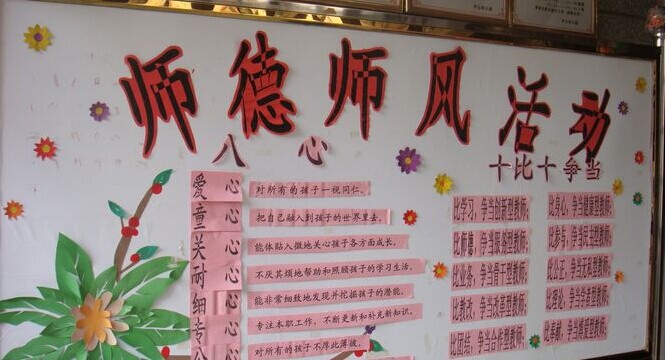 师德师风活动
八心
十比十争当
爱心
对所有的孩子一视同仁。
童心
把自己融入到孩子的世界里去。
关心
能体贴入微地关心孩子各方面成长。
耐心
不厌其烦地帮助和照顾孩子的学习生活。
细心
能非常细致地发现并挖掘孩子的潜能。
专心
专注本职工作，不断更新和补充新知识。
公心
对所有的孩子不厚此薄彼。
比学习，争当创新型教师；
比师德，争当
比业务，争当骨干型教师；
比教改，争当改革型教师；
比团结，争当合作型教师；
比身心，争当健康型教师；
比参与，争当
比公正，争当无私型教师；
比理论，争当学者型教师；
比奉献，争当